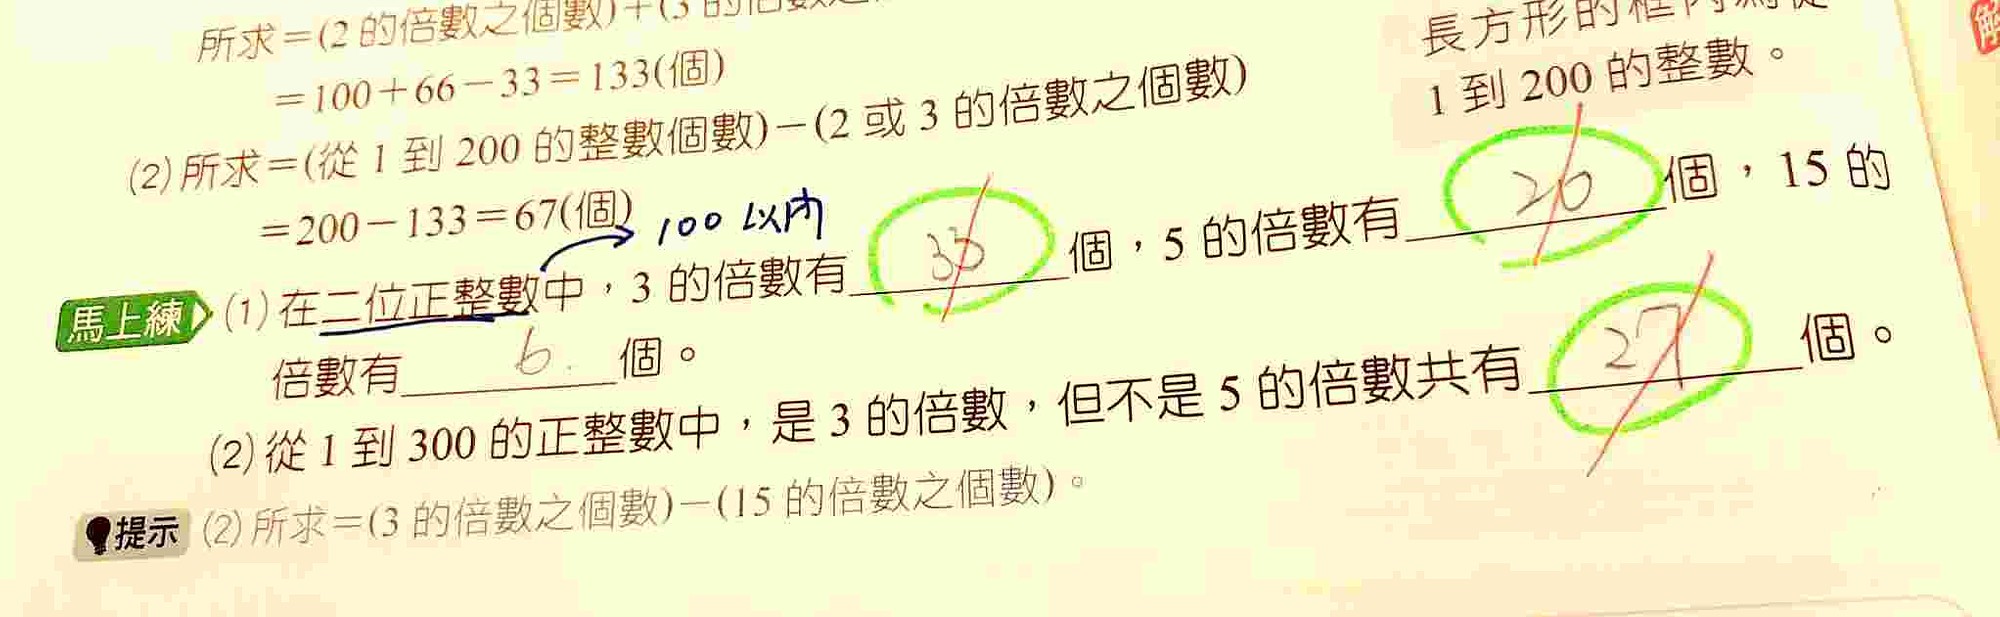 所求=(2 的倍數之個數)+(3 的倍數之
=100+66-33=133(個)
(2) 所求=(從 1 到 200 的整數個數)-(2 或 3 的倍數之個數)
=200-133=67(個)
長方形的框內為從
1 到 200 的整數。
100 以內
馬上練 (1) 在二位正整數中,3 的倍數有 33 個,5 的倍數有 20 個,15 的
倍數有 6. 個。
(2) 從 1 到 300 的正整數中,是 3 的倍數,但不是 5 的倍數共有 27 個。
提示 (2) 所求=(3 的倍數之個數)-(15 的倍數之個數)。
解